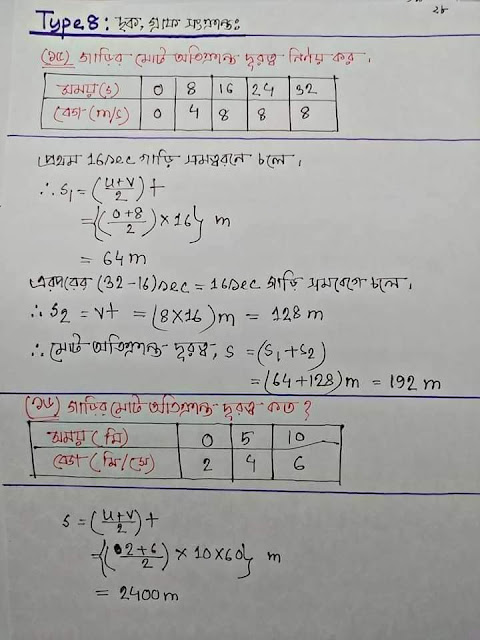 ২৮
Type 8: ছক, গ্রাফ সংক্রান্তঃ
(১৫) গাড়ির মোট অতিক্রান্ত দূরত্ব নির্ণয় কর।
সময়(s) 0 8 16 24 32
বেগ(m/s) 0 4 8 8 8
প্রথম 16sec গাড়ি সমত্বরনে চলে।
∴ s₁ = (u+v/2) t
= {(0+8/2) × 16} m
= 64 m
এরপরের (32-16) sec = 16sec গাড়ি সমবেগে চলে।
∴ s₂ = vt = (8×16) m = 128 m
∴ মোট অতিক্রান্ত দূরত্ব, s = (s₁+s₂)
= (64+128) m = 192 m
(১৬) গাড়ির মোট অতিক্রান্ত দূরত্ব কত?
সময়(মি) 0 5 10
বেগ(মি/সে) 2 4 6
s = (u+v/2) t
= {(2+6/2) × 10×60} m
= 2400 m